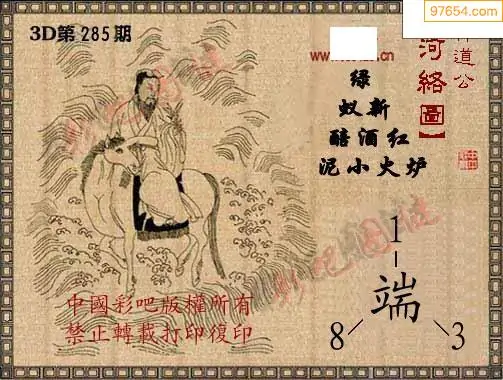 97654.com
3D第285期
道公
河絡圖】
绿
蚁新
醅酒红
泥小火炉
1
端
8
3
中國彩吧版權所有
禁止轉載打印復印